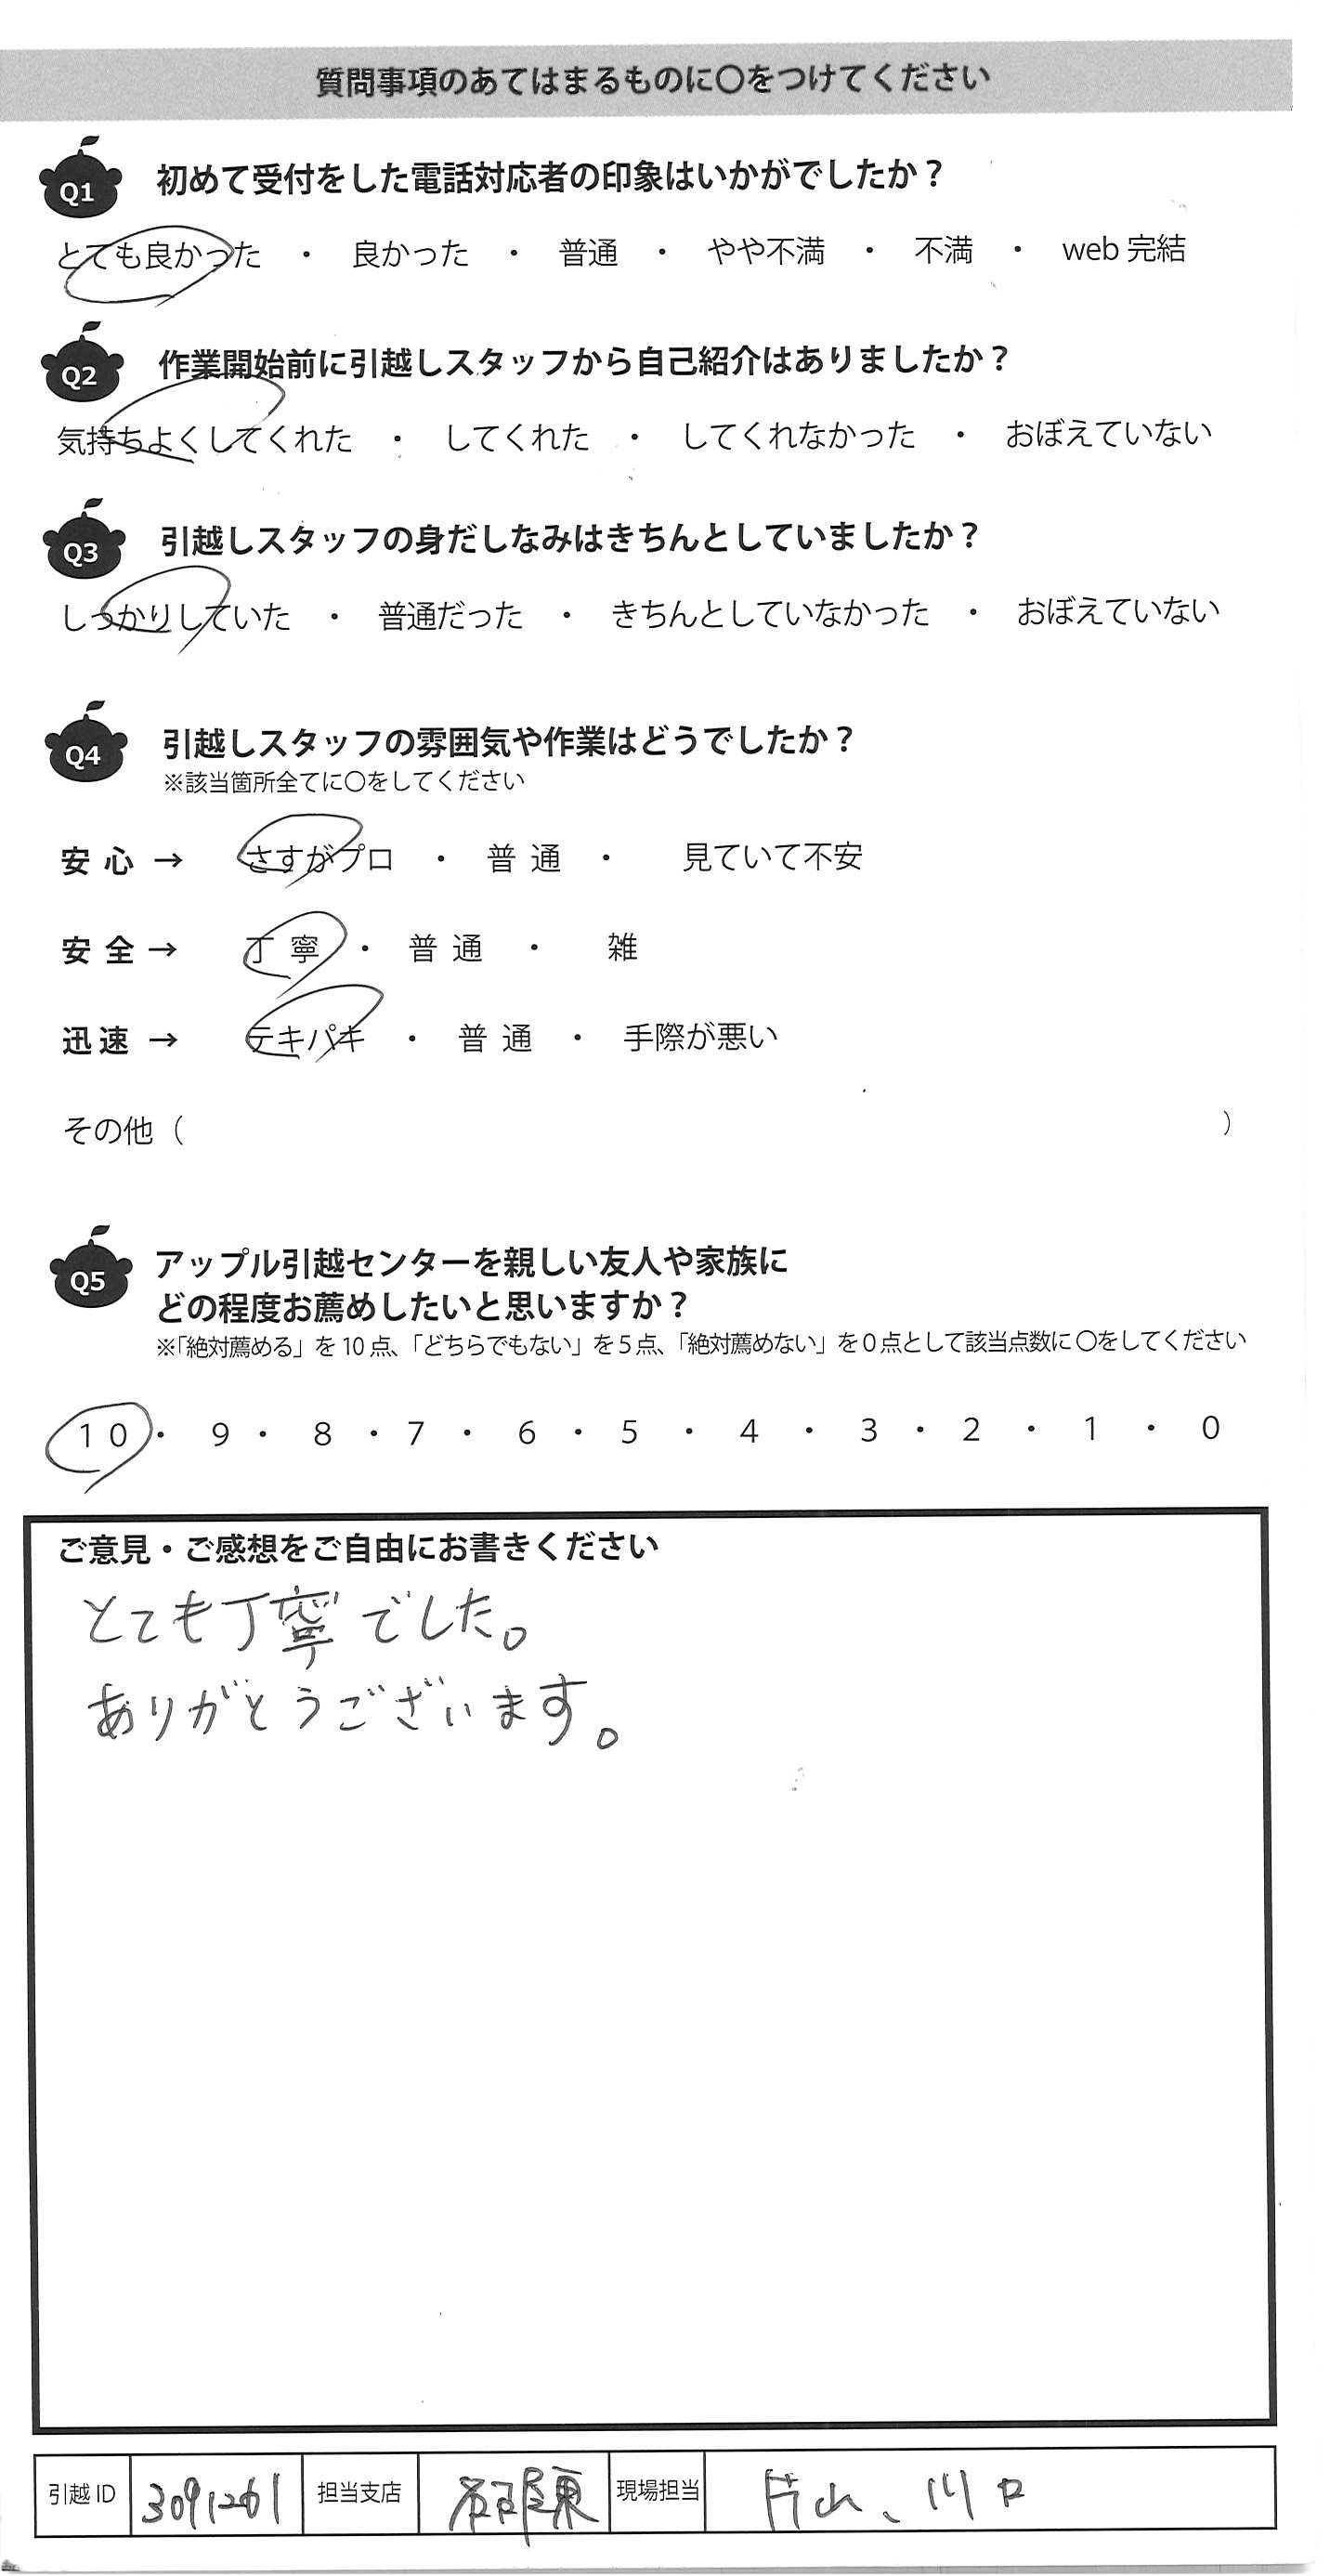 質問事項のあてはまるものに〇をつけてください
Q1 初めて受付をした電話対応者の印象はいかがでしたか？
とても良かった ・ 良かった ・ 普通 ・ やや不満 ・ 不満 ・ web 完結
Q2 作業開始前に引越しスタッフから自己紹介はありましたか？
気持ちよくしてくれた ・ してくれた ・ してくれなかった ・ おぼえていない
Q3 引越しスタッフの身だしなみはきちんとしていましたか？
しっかりしていた ・ 普通だった ・ きちんとしていなかった ・ おぼえていない
Q4 引越しスタッフの雰囲気や作業はどうでしたか？
※該当箇所全てに〇をしてください
安心 → さすがプロ ・ 普通 ・ 見ていて不安
安全 → 丁寧 ・ 普通 ・ 雑
迅速 → テキパキ ・ 普通 ・ 手際が悪い
その他（ ）
Q5 アップル引越センターを親しい友人や家族に
どの程度お薦めしたいと思いますか？
※「絶対薦める」を10点、「どちらでもない」を5点、「絶対薦めない」を0点として該当点数に〇をしてください
10 ・ 9 ・ 8 ・ 7 ・ 6 ・ 5 ・ 4 ・ 3 ・ 2 ・ 1 ・ 0
ご意見・ご感想をご自由にお書きください
とても丁寧でした。
ありがとうございます。
引越ID 3091261 担当支店 名古屋東 現場担当 片山、川口